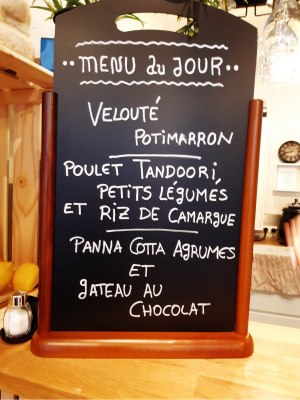 MENU du JOUR
VELOUTÉ
POTIMARRON
POULET TANDOORI,
PETITS LÉGUMES
ET RIZ DE CAMARGUE
PANNA COTTA AGRUMES
ET
gATEAU AU
CHOCOLAT